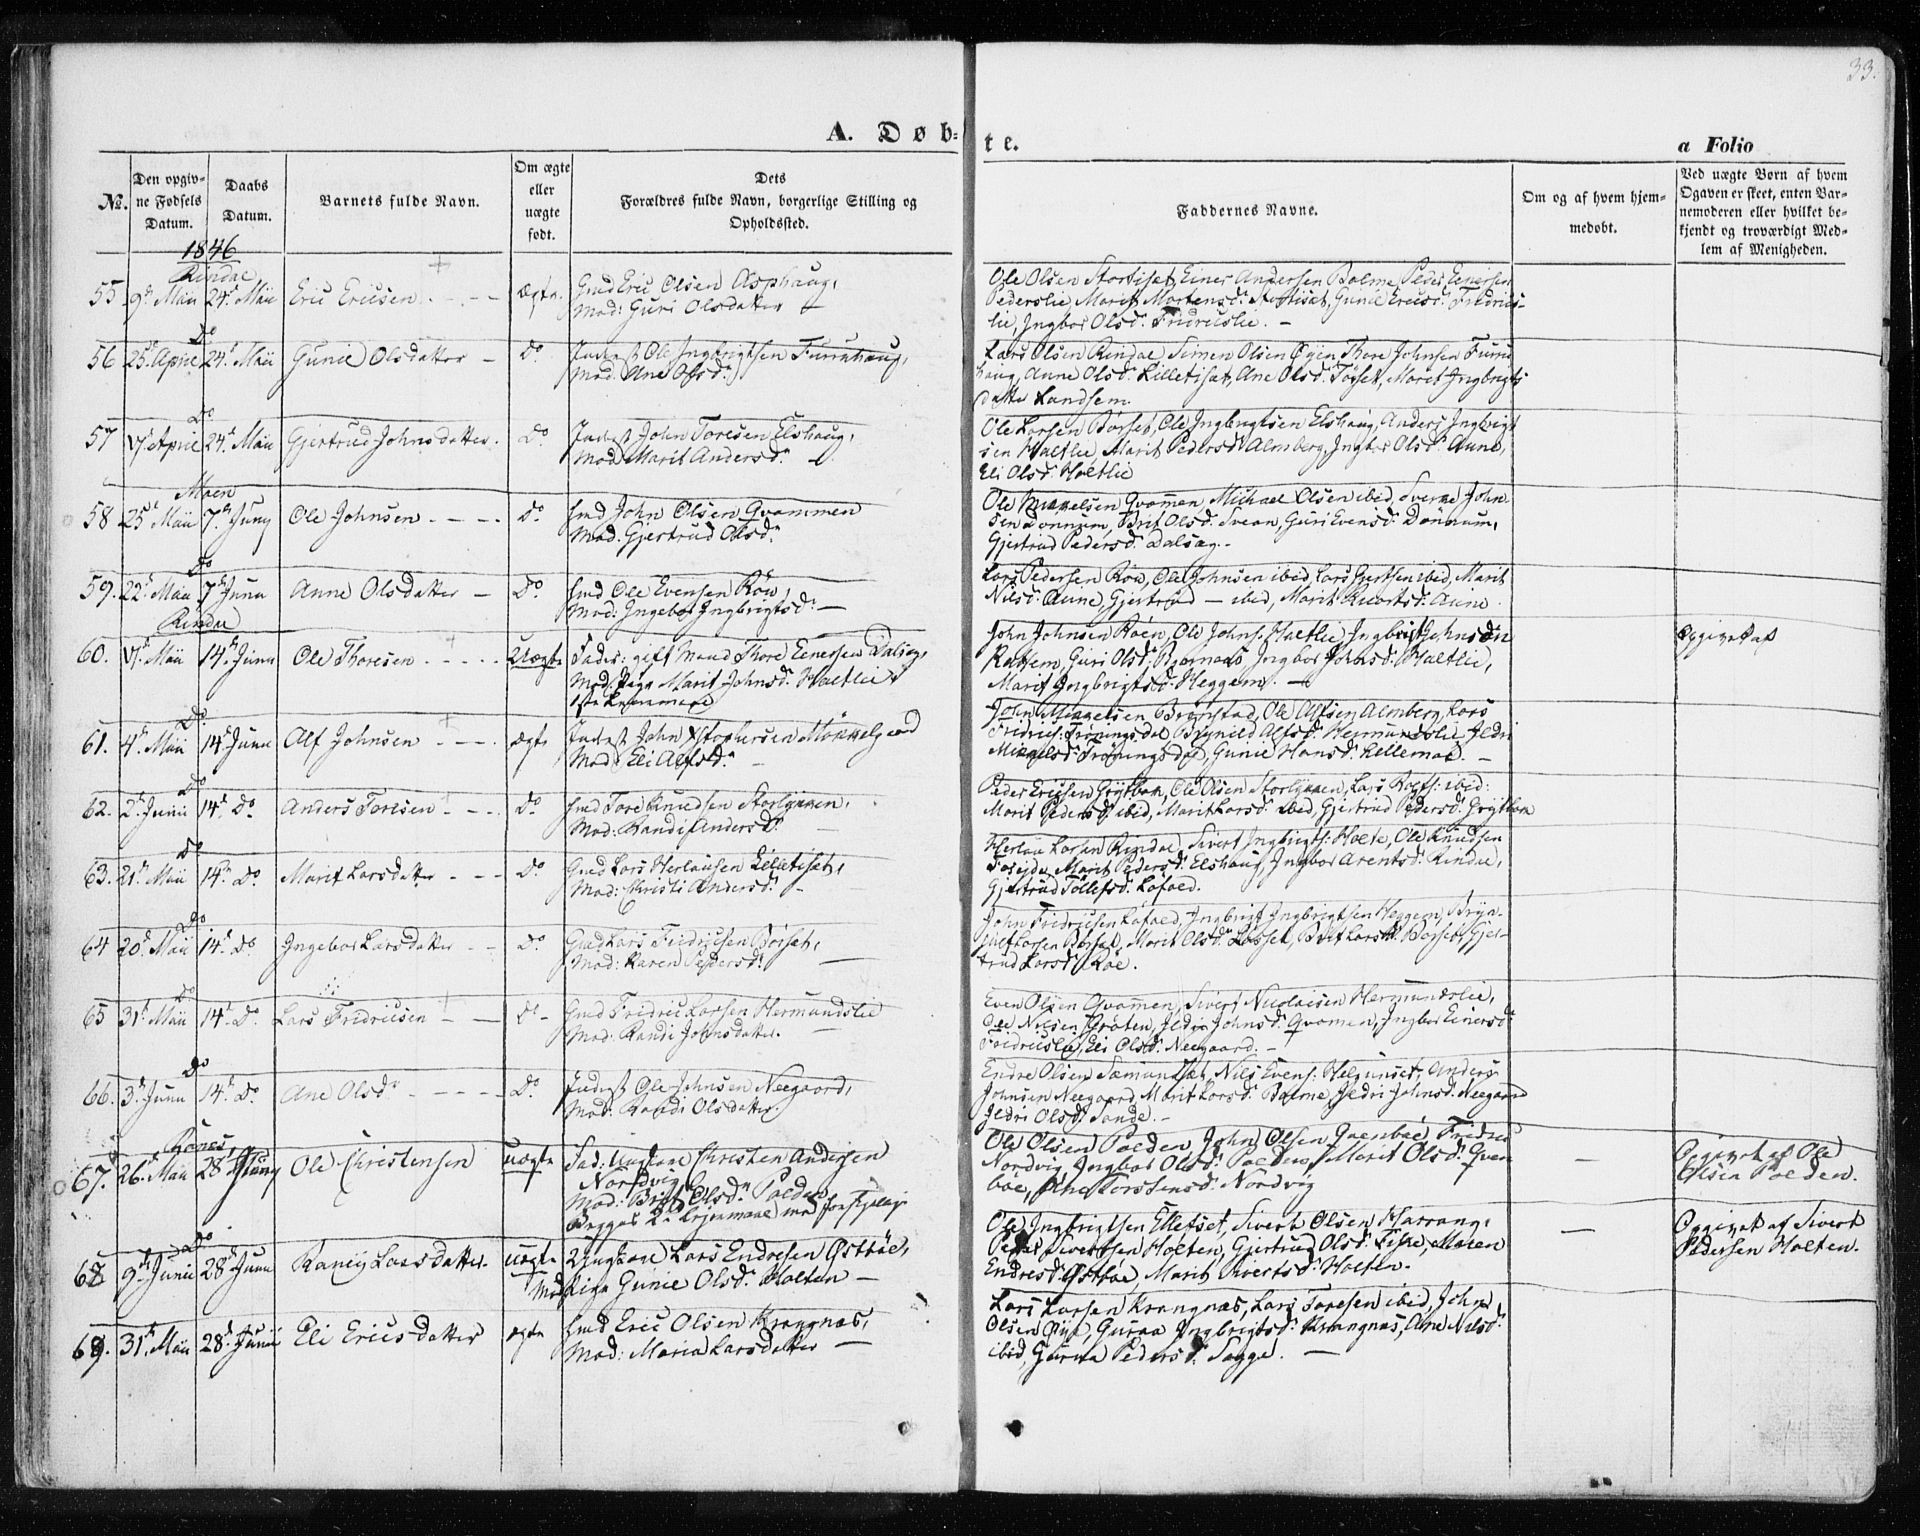 33.
A. Døb-
te.
a Folio
No.
Den opgiv-
ne Fødsels
Datum.
Daabs
Datum.
Barnets fulde Navn.
Om ægte
eller
uægte
født.
Dets
Forældres fulde Navn, borgerlige Stilling og
Opholdssted.
Faddernes Navne.
Om og af hvem hjem-
medøbt.
Ved uægte Børn af hvem
Ogaven er skeet, enten Bar-
nemoderen eller hvilket be-
kjendt og troværdigt Med-
lem af Menigheden.
1846
Rindal
55 9d Maii 24d Maii Eric Ericsen ægte. Gmd Eric Olsen Asphaug,
Mod: Guri Olsdatter
Ole Olsen Stortiset, Einer Andersen Bolme, Peder Eenersen
Pederslie, Marit Mortensd: Stortiset, Gunil Ericsd: Fridrics-
lie, Ingbor Olsd: Fridricslie. -
Do
56 25d April 24d Maii Gunil Olsdatter - Do Inderst Ole Ingbrigtsen Furuhaug,
Mod. Ane Olsd:
Lars Olsen Rindal, Simen Olsen Øyen, Thore Johnsen Furu
haug, Anne Olsd: Lilletiset, Ane Olsd: Tøset, Marit Ingbrigts
datter Landsem.
Do
57 April 24d Maii Gjertrud Johnsdatter. Do Inderst John Toresen Elshaug,
Mod. Marit Andersd:
Ole Larsen Børset, Ole Ingbrigtsen Elshaug, Anders Ingbrigt
sen Haltlie, Marit Pedersd: Almberg, Ingbor Olsd: Aune,
Eli Olsd: Holtlie
Moen
58 25d Maii 7d Juny Ole Johnsen Do Gmd John Olsen Qvammen
Mod. Gjertrud Olsd:
Ole Mikkelsen Qvammen, Michael Olsen ibid, Sverke John-
sen Dønnum, Brit Olsd: Svean, Guri Evensd: Dønnum,
Gjertrud Pedersd: Dalsæg. -
Do
59. 22d Maii 7d Junii Anne Olsdatter - Do Gmd Ole Evensen Røv,
Mod. Ingebor Ingbrigtsd: -
Lars Pedersen Røv, Ole Johnsen ibid, Lars Gjertsen ibid, Marit
Nilsd: Aune, Gjertrud - ibid, Marit Aune.
Rindal
60. Maii 14d Junii Ole Thoresen Uægte Fader: gift Mand Thore Eenersen Dalsæg,
Mod: Pige Marit Johnsd: Haltlie,
1ste
John Johnsen Roen, Ole Johns. Haltlie, Ingbrigt Johnsen
Guri Olsd: Bjørnaas, Ingbor Johnsd: Haltlie,
Marit Ingbrigtsd: Heggem. -
Opgivet af
Do
61. 4d Maii 14d Junii Alf Johnsen ægte Inderst John
Mod. Eli Alfsd:
John Mikkelsen Ole Alfsen Almberg, Lars
Trønings dal, Brynild Alfsd: Hermundslie, Ildri
Mikkelsd: Trøningsdal, Gunil Hansd: Lillemoe. -
Do
62. 2d Junii 14d Do Anders Toresen Do Gmd Tore Knudsen Storlykken,
Mod: Randi Andersd:
Peder Ericsen Grytbak, Ole Olsen Storlykken, Lars ibid:
Marit Pedersd: ibid, Marit Larsd: ibid, Gjertrud Pedersd: Grytbak
Do
63. 21d Maii 14d Do. Marit Larsdatter Do Gmd Lars Herlausen Lilletiset,
Mod: Christi Andersd: -
Herlau Larsen Rindal, Sivert Ingbrigts: Holte, Ole Knudsen
Marit Pedersd: Elshaug, Ingbor Arentsd: Rindal,
Gjertrud Tollefsd: Lofald.
Do
64 20d Maii 14d Do Ingebor Larsdatter Do Gmd Lars Fridricsen Børset,
Mod: Karen Pedersd: -
John Fridricsen Lofald, Ingbrigt Ingbrigtsen Heggem, Bryn-
julf Larsen Børset, Marit Olsd: Løsset, Brit Larsd: Børset, Gjer-
trud Larsd: Roe.
Do
65 31d Maii 14d Do. Lars Fridricsen Do Gmd Fridric Larsen Hermundslie
Mod: Randi Johnsdatter.
Even Olsen Qvammen, Sivert Nicolaisen Hermundslie,
Ole Nilsen Grøten, Ildri Johnsd: Qvammen, Ingbor Einersd:
Fridricslie, Eli Olsd: Neegaard. -
Do
66. 3d Junii 14d Do. Ane Olsd: Do. Inderst Ole Johnsen Neegaard,
Mod: Randi Olsdatter.
Endre Olsen Sæmundset, Nils Evens: Helgunset, Anders
Johnsen Neegaard, Marit Larsd: Bolme, Ildri Johnsd: Neegaard
Ildri Olsd: Sande. -
Bones,
67. 26d Maii 28d Juny Ole Christensen uægte Fad. Ungkarl Christen Andersen
Nordvig
Mod: Brit Olsd: Polden
Begges 2d Leiermaal
Ole Olsen Polden, John Olsen Qvenboe, Fridric
Nordvig, Ingbor Olsd: Polden, Marit Olsd: Qven
boe, Ane Torstensd: Nordvig
-
Opgivet af Ole
Olsen Polden.
Do
68 9d Junii 28d Junii Larsdatter. uægte Ungkarl Lars Endresen Østbøe,
Mod. Pige Gunil Olsd: Holten -
Ole Ingbrigtsen Elletset, Sivert Olsen Harrang,
Peder Sivertsen Holten, Gjertrud Olsd: Fiske, Maren
Endresd: Østbøe, Marit Sivertsd: Holten.
-
Opgivet af Sivert
Pedersen Holten.
69. 31d Maii 28d Junii Eli Ericsdatter ægte Gmd Eric Olsen Krangnæs,
Mod: Maria Larsdatter -
Lars Larsen Krangnæs, Lars Toresen ibid, John
Olsen Øye, Guraa Ingbrigtsd: Krangnæs, Ane Nilsd:
ibid, Guraa Pedersd: Sagge. -